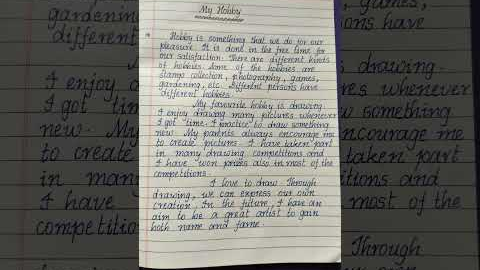 My Hobby
Hobby is something that we do for our
pleasure. It is dont in the free time for
our satisfaction. There are different kinds
of hobbies. Some of the hobbies are
stamp collection, photography, games,
gardening, etc. Different persons have
different hobbies.
My favourite hobby is drawing.
I enjoy drawing many pictures whenever
I got time. I practice to draw something
new. My parents always encourage me
to create pictures. I have taken part
in many drawing competitions and
I have won prizes also in most of the
competitions.
I love to draw. Through
drawing, we can express our own
creation. In the future, I have an
aim to be a great artist to gain
both name and fame.